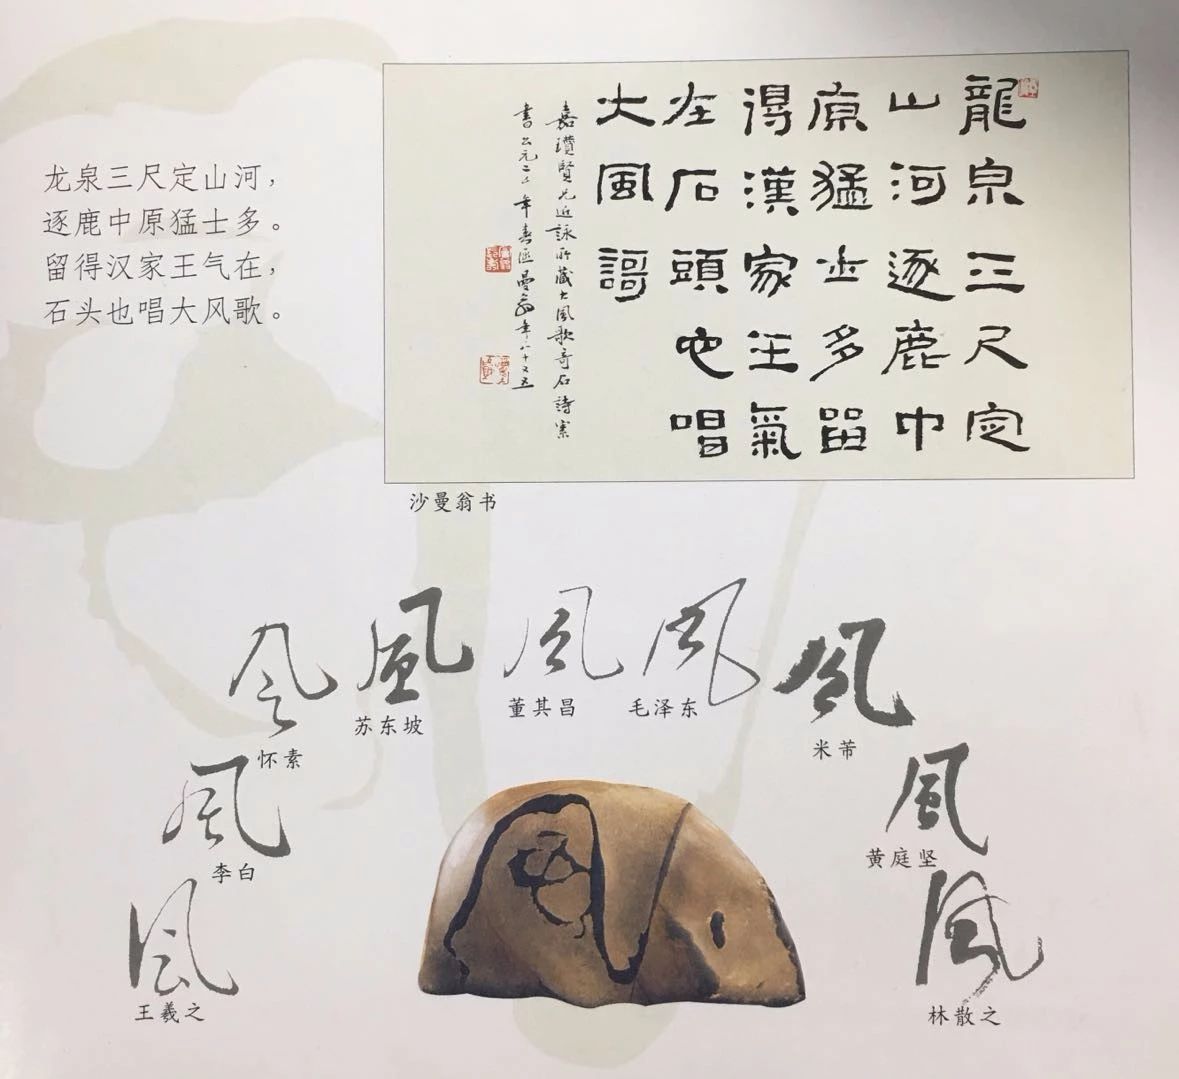 龙泉三尺定山河，
逐鹿中原猛士多。
留得汉家王气在，
石头也唱大风歌。
龍泉三尺定
山河逐鹿中
原猛士多留
得漢家王氣
在石頭也唱
大風謌
嘉瓚賢兄近詠所藏大風歌奇石詩索
書公元二年春曼翁年八十又五
沙曼翁书
風
苏东坡
風
董其昌
風
毛泽东
風
米芾
風
怀素
風
李白
風
黄庭坚
風
王羲之
風
林散之